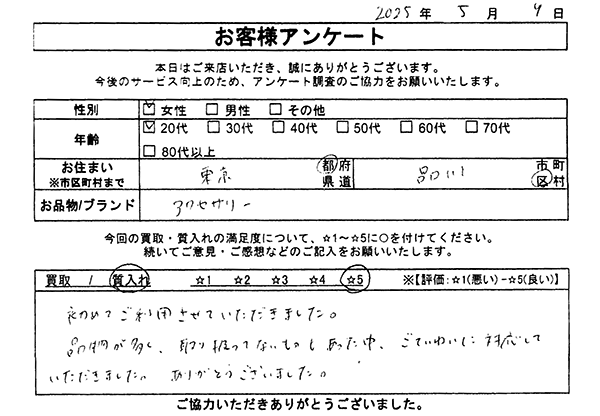 2025年 5月 4日
お客様アンケート
本日はご来店いただき、誠にありがとうございます。
今後のサービス向上のため、アンケート調査のご協力をお願いいたします。
性別 ☑女性 □男性 □その他
年齢 ☑20代 □30代 □40代 □50代 □60代 □70代
□80代以上
お住まい 東京 都府 品川 市町
※市区町村まで 県道 区村
お品物/ブランド アクセサリー
今回の買取・質入れの満足度について、☆1~☆5に○を付けてください。
続いてご意見・ご感想などのご記入をお願いいたします。
買取 / 質入れ ☆1 ☆2 ☆3 ☆4 ☆5 ※【評価:☆1(悪い)-☆5(良い)】
初めてご利用させていただきました。
品物が多く、取り扱ってないものもあった中、ごていねいに対応して
いただきました。ありがとうございました。
ご協力いただきありがとうございました。